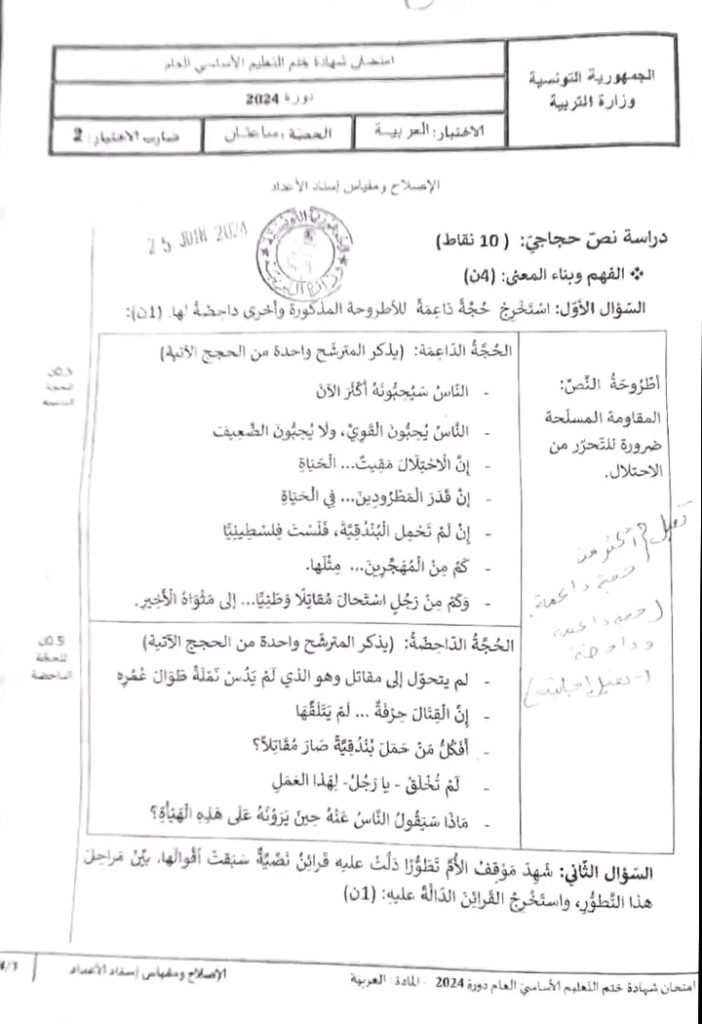 الجمهورية التونسية
وزارة التربية
امتحان شهادة ختم التعليم الأساسي العام
دورة 2024
الاختبار: العربية
الحصة: ساعتان
ضارب الاختبار: 2
الإصلاح ومقياس إسناد الأعداد
25 JUIN 2024
دراسة نصّ حجاجيّ: (10 نقاط)
❖ الفهم وبناء المعنى: (4ن)
السّؤال الأوّل: اسْتَخْرِجْ حُجَّةً دَاعِمَةً للأطروحة المذكورة وأخرى داحِضَةً لها. (1ن):
أطْرُوحَةُ النّصّ:
المقاومة المسلّحة
ضرورة للتّحرّر من
الاحتلال.
الحُجَّةُ الدّاعِمَة: (يذكر المترشّح واحدة من الحجج الآتية)
- النّاسُ سَيُحِبُّونَهُ أكْثَرَ الآنَ
- النّاسُ يُحِبُّونَ الْقَوِيَّ، ولَا يُحِبُّونَ الضَّعِيفَ
- إنَّ الْاحْتِلَالَ مَقِيتٌ... الْحَيَاةِ
- إنّ قَدَرَ الْمَطْرُودِينَ... فِي الْحَيَاةِ
- إنْ لَمْ تَحْمِلِ الْبُنْدُقِيَّةَ، فَلَسْتَ فِلِسْطِينِيًّا
- كَمْ مِنَ الْمُهَجَّرِينَ... مِثْلَها.
- وَكَمْ مِنْ رَجُلٍ اسْتَحَالَ مُقَاتِلًا وَطَنِيًّا... إلى مَثْوَاهُ الْأَخِيرِ.
0.5ن
للحجّة
الداعمة
الحُجَّةُ الدّاحِضَةُ: (يذكر المترشّح واحدة من الحجج الآتية)
- لم يتحوّل إلى مقاتل وهو الذي لَمْ يَدُسْ نَمْلَةً طَوَالَ عُمُرِه
- إنَّ الْقِتَالَ حِرْفَةٌ ... لَمْ يَتَلَقَّهَا
- أَفَكُلُّ مَنْ حَمَلَ بُنْدُقِيَّةً صَارَ مُقَاتِلاً؟
- لَمْ تُخْلَقْ - يا رَجُلُ- لِهَذا العَمَلِ
- مَاذَا سَيَقُولُ النّاسُ عَنْهُ حِينَ يَرَوْنَهُ عَلَى هَذِهِ الْهَيْأَةِ؟
0.5ن
للحجّة
الداحضة
تقبل
أكثر من
حجة داعمة
حجة داعمة
وداحضة
السّؤال الثّاني: شَهِدَ مَوْقِفُ الأُمِّ تَطَوُّرًا دَلَّتْ عليه قَرائِنُ نَصِّيَّةٌ سَبَقَتْ أقْوالَها. بيِّنْ مَراحِلَ
هذا التّطَوُّرِ، واستَخْرِجْ القَرائِنَ الدّالّةَ عليهِ: (1ن)
امتحان شهادة ختم التعليم الأساسي العام دورة 2024 - المادة: العربية
الإصلاح ومقياس إسناد الأعداد